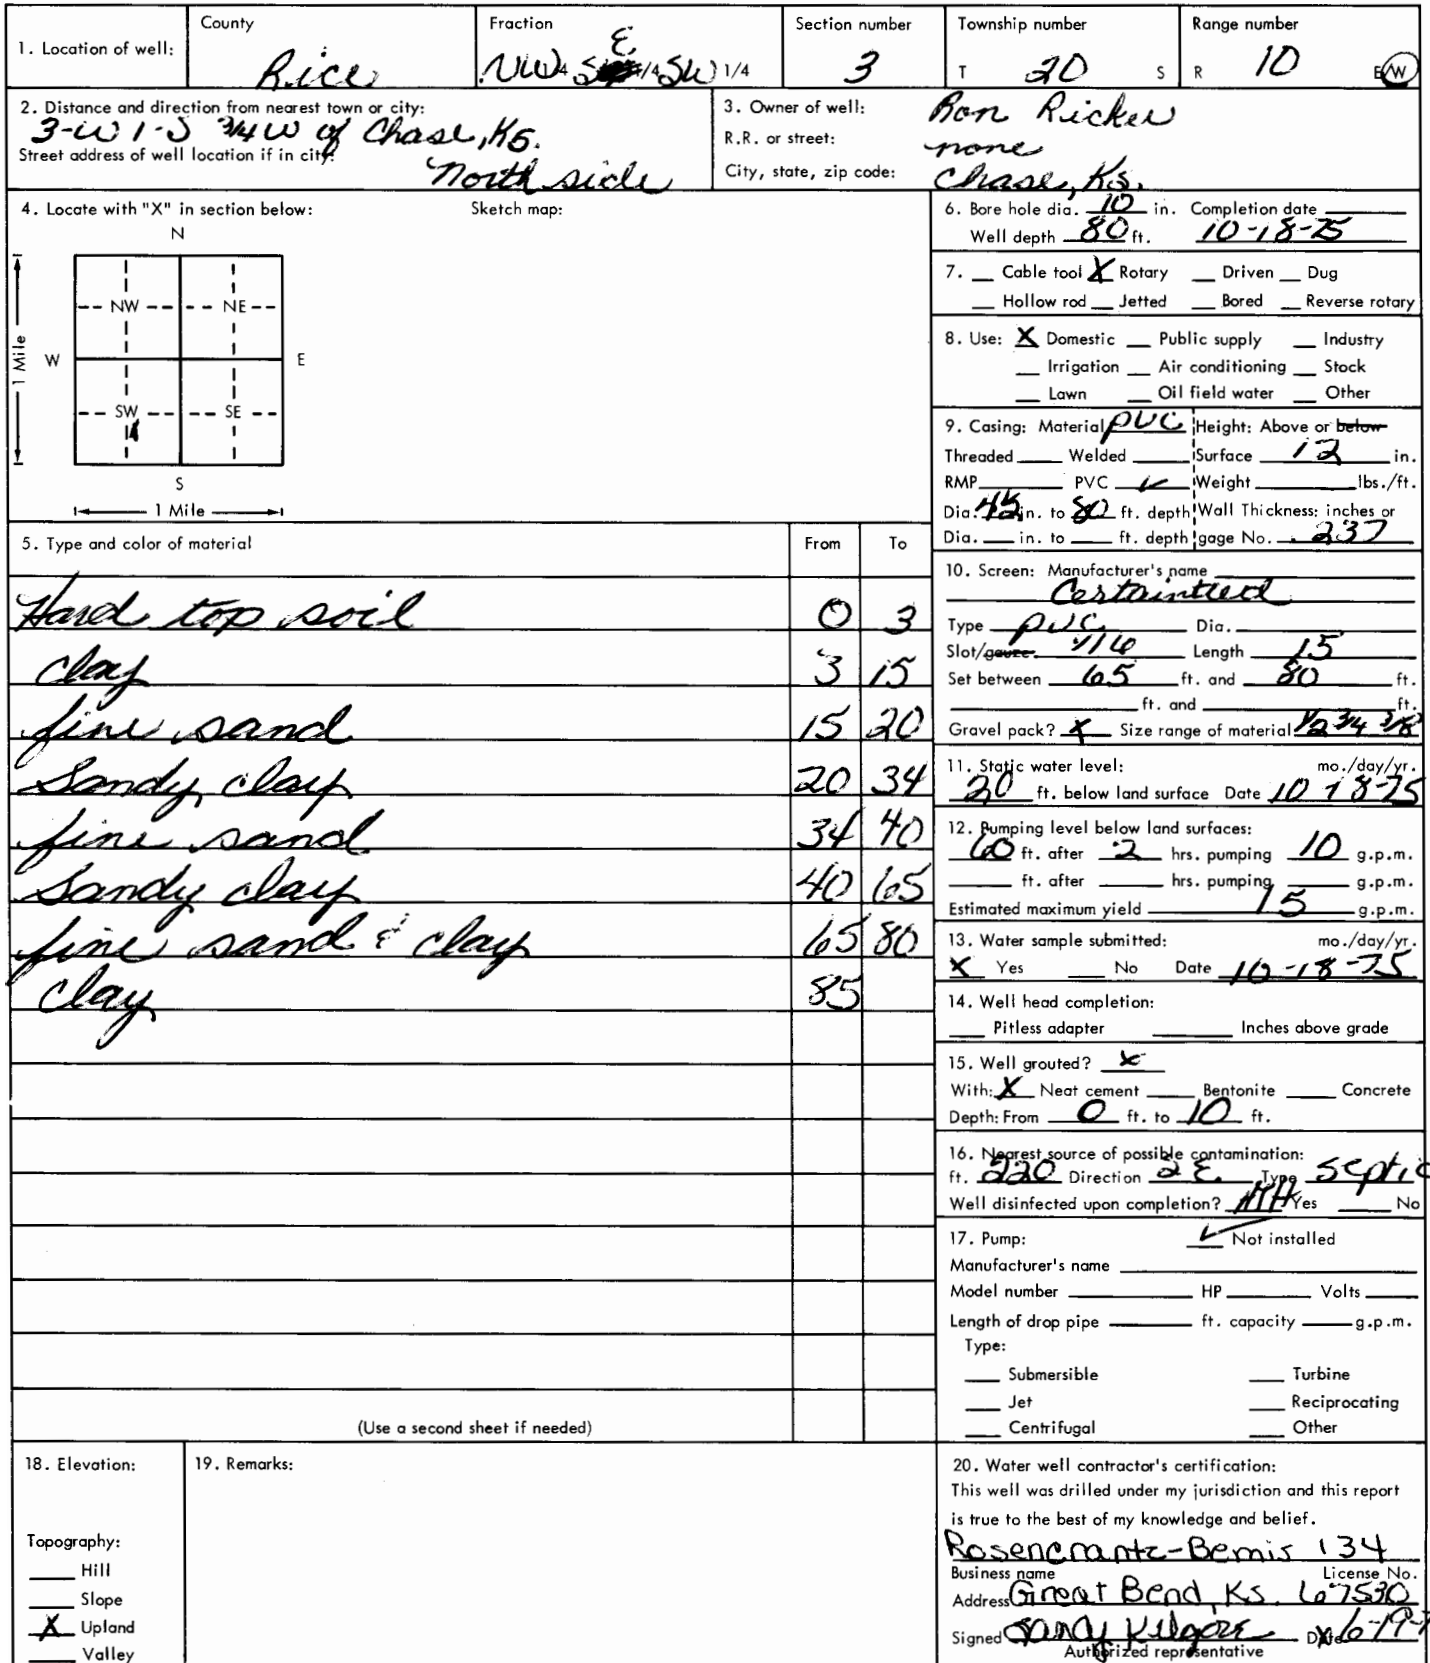 1. Location of well: County Rice Fraction NW 1/4 SE 1/4 SW 1/4 Section number 3 Township number T 20 S Range number R 10 E/W
2. Distance and direction from nearest town or city:
3-W 1-S 3/4 W of Chase, Ks.
Street address of well location if in city:
North side
3. Owner of well: Ron Ricker
R.R. or street: none
City, state, zip code: Chase, Ks.
4. Locate with "X" in section below: Sketch map:
N
NW NE
W E
1 Mile
SW SE
S
1 Mile
5. Type and color of material From To
Hard top soil 0 3
clay 3 15
fine sand 15 20
Sandy clay 20 34
fine sand 34 40
Sandy clay 40 65
fine sand & clay 65 80
clay 85
(Use a second sheet if needed)
6. Bore hole dia. 10 in. Completion date
Well depth 80 ft. 10-18-75
7. Cable tool X Rotary Driven Dug
Hollow rod Jetted Bored Reverse rotary
8. Use: X Domestic Public supply Industry
Irrigation Air conditioning Stock
Lawn Oil field water Other
9. Casing: Material PVC Height: Above or below
Threaded Welded Surface 12 in.
RMP PVC ✓ Weight lbs./ft.
Dia. in. to 80 ft. depth Wall Thickness: inches or
Dia. in. to ft. depth gage No. .237
10. Screen: Manufacturer's name
Certainteed
Type PVC Dia.
Slot/gauze 1/16 Length 15
Set between 65 ft. and 80 ft.
ft. and ft.
Gravel pack? X Size range of material 1/2 3/4 3/8
11. Static water level: mo./day/yr.
20 ft. below land surface Date 10-18-75
12. Pumping level below land surfaces:
60 ft. after 2 hrs. pumping 10 g.p.m.
ft. after hrs. pumping g.p.m.
Estimated maximum yield 15 g.p.m.
13. Water sample submitted: mo./day/yr.
X Yes No Date 10-18-75
14. Well head completion:
Pitless adapter Inches above grade
15. Well grouted? X
With: X Neat cement Bentonite Concrete
Depth: From 0 ft. to 10 ft.
16. Nearest source of possible contamination:
ft. 220 Direction Type septic
Well disinfected upon completion? HTH Yes No
17. Pump: ✓ Not installed
Manufacturer's name
Model number HP Volts
Length of drop pipe ft. capacity g.p.m.
Type:
Submersible Turbine
Jet Reciprocating
Centrifugal Other
18. Elevation:
Topography:
Hill
Slope
X Upland
Valley
19. Remarks:
20. Water well contractor's certification:
This well was drilled under my jurisdiction and this report
is true to the best of my knowledge and belief.
Rosencrantz-Bemis 134
Business name License No.
Address Great Bend, Ks. 67530
Signed Kilgore Date 6-19-
Authorized representative